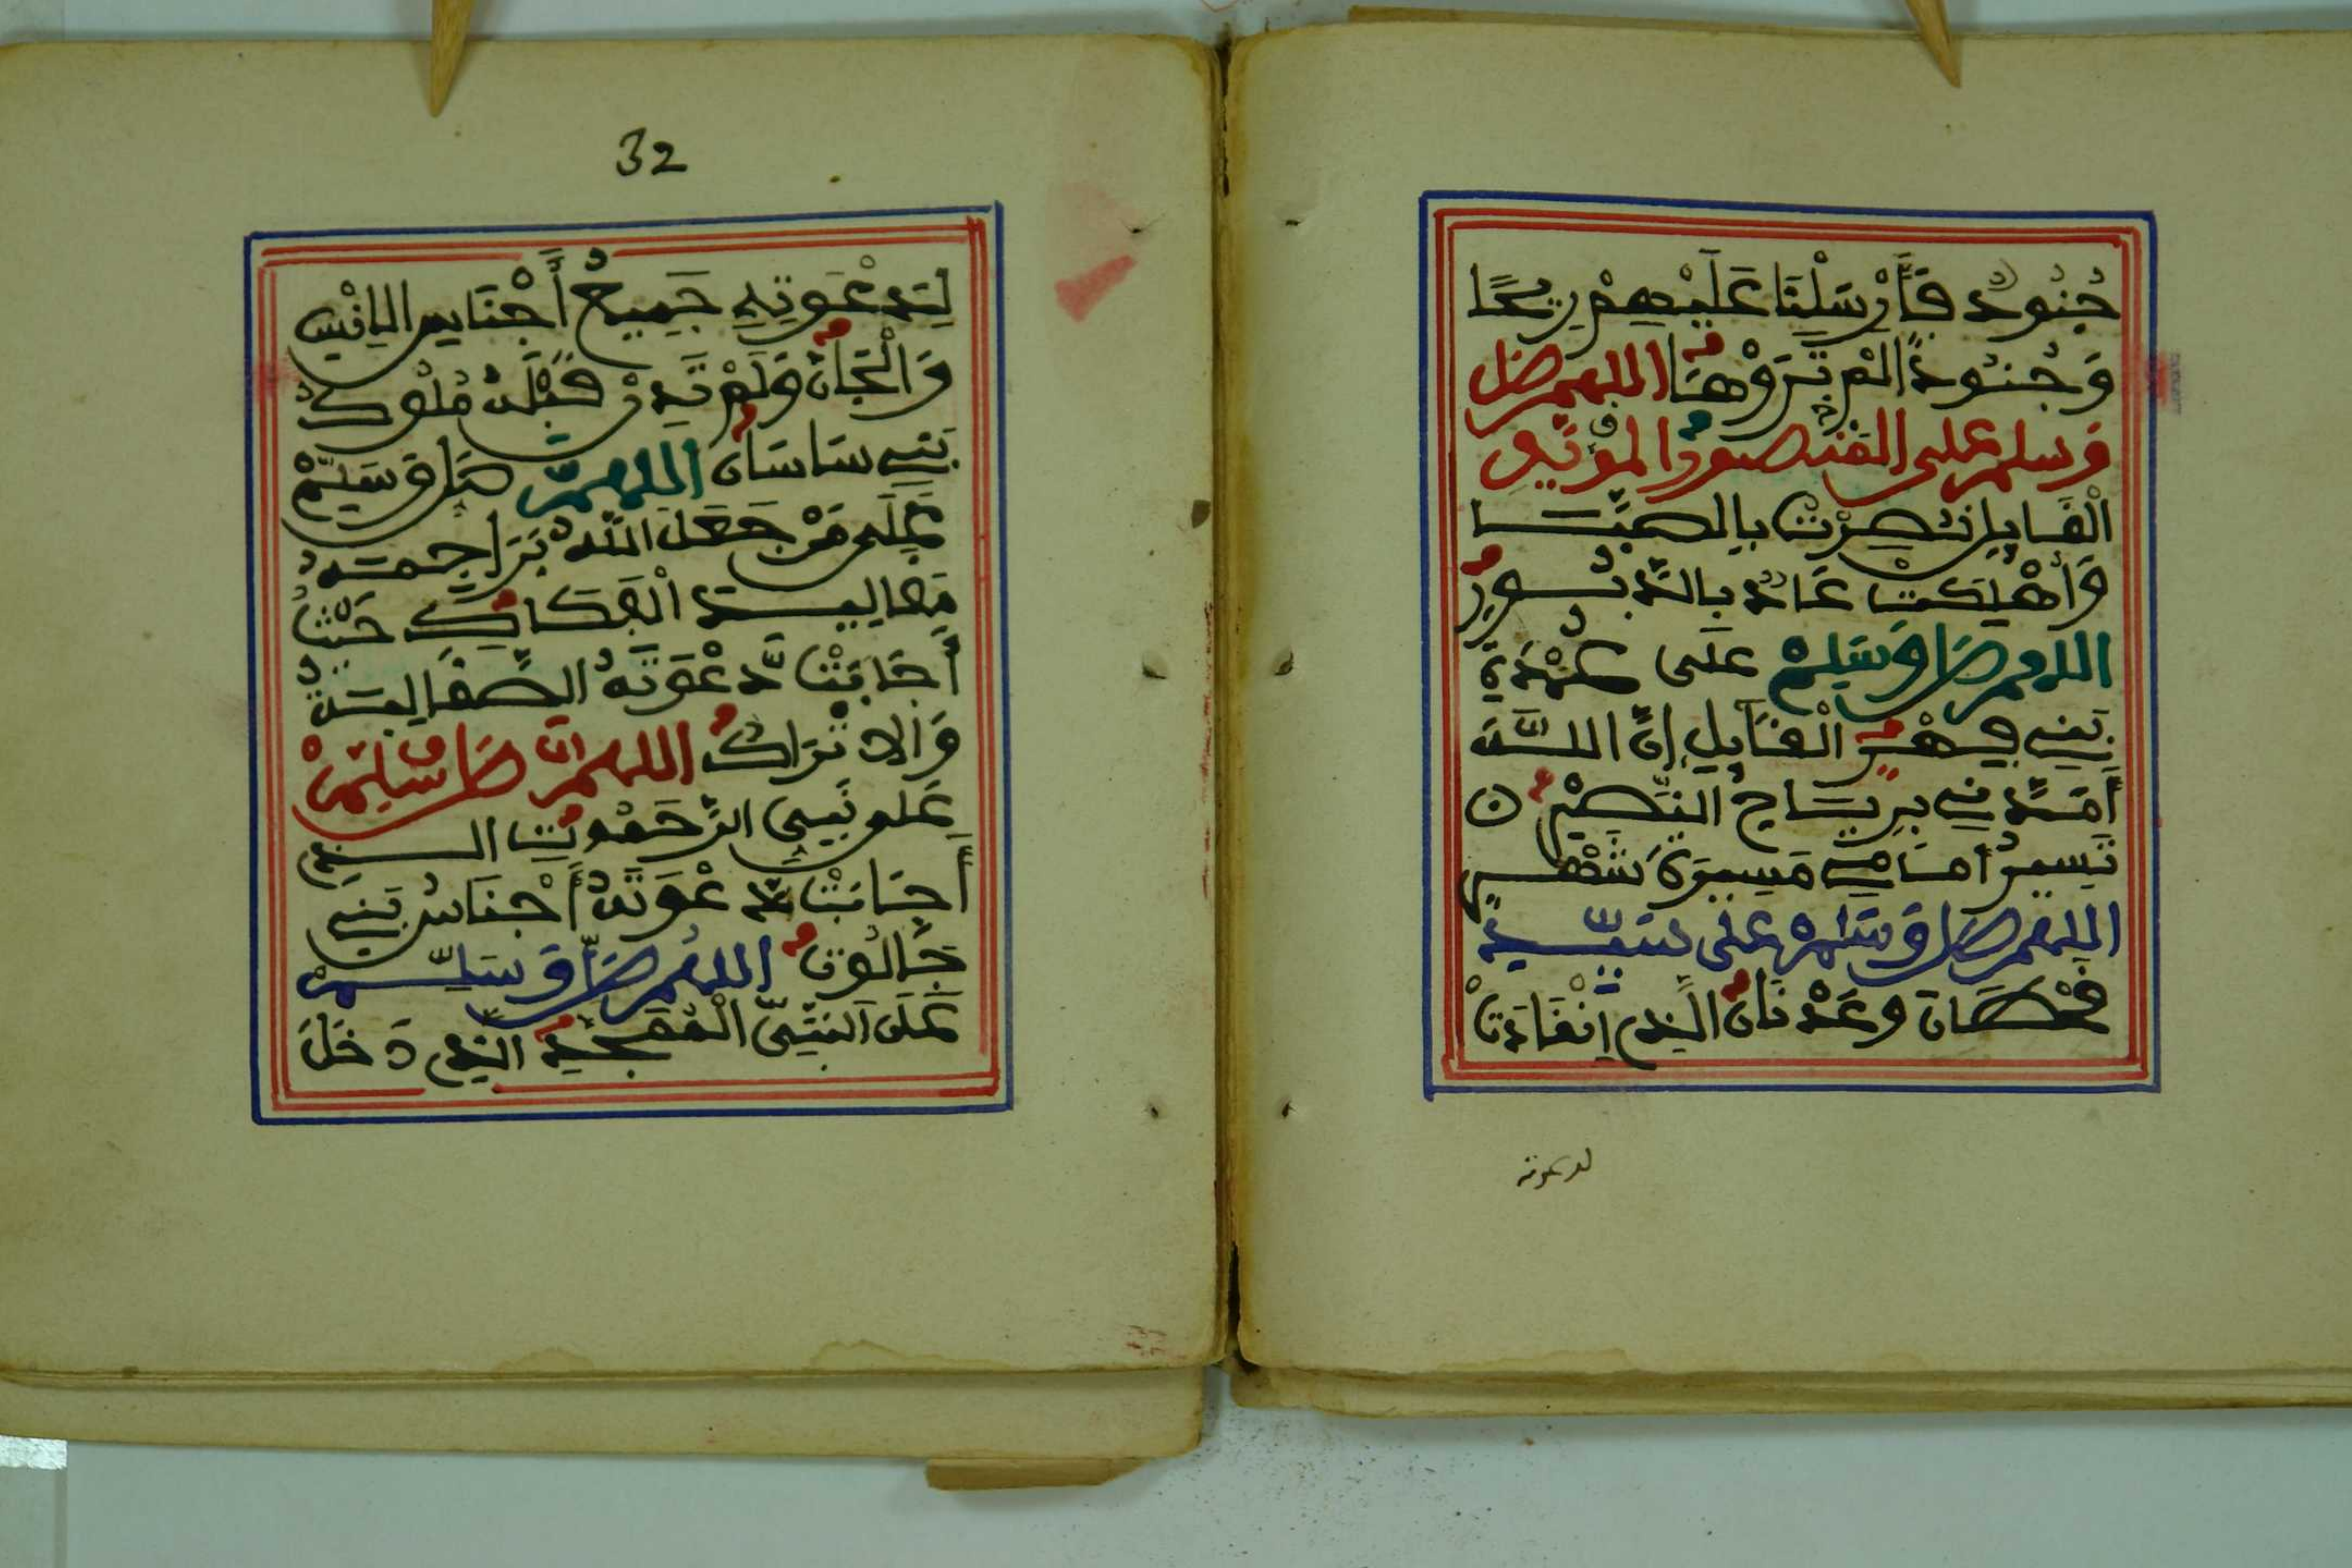 جُنُودٌ فَأَرْسَلْنَا عَلَيْهِمْ رِيحًا
وَجُنُودًا لَمْ تَرَوْهَا اللهم صل
وسلم على المنصور المؤيد
الْقَايِلِ نُصِرْتُ بِالصَّبَا
وَأُهْلِكَتْ عَادٌ بِالدَّبُورِ
اللهم صَلِّ وَسَلِّمْ عَلَى عُمْدَةِ
بَنِي فِهْرٍ الْقَايِلِ إِنَّ اللَّهَ
أَمَدَّنِي بِرِيَاحِ النَّصْرِ
تَسِيرُ أَمَامِي مَسِيرَةَ شَهْرٍ
اللهم صَلِّ وَسَلِّمْ عَلَى سَيِّدِ
قَحْطَانَ وَعَدْنَانَ الَّذِي انْقَادَتْ
لدعوته
32
لِدَعْوَتِهِ جَمِيعُ أَجْنَاسِ الْإِنْسِ
وَالْجَانِّ وَلَمْ تَدْرِ قَبْلَهُ مُلُوكُ
بَنِي سَاسَانَ اللهم صَلِّ وَسَلِّمْ
عَلَى مَنْ جَعَلَ اللهُ تَرَاجِمَهُ
مَقَالِيدَ الْفَكَاكِ حَيْثُ
أَجَابَتْ دَعْوَتَهُ الصَّقَالِبَةُ
وَالْاتْرَاكُ اللهم صَلِّ وسَلِّمْ
عَلَى نَبِيِّ الرَّحَمُوتِ الـ
أَجَابَتْ دَعْوَتَهُ أَجْنَاسُ بَنِي
جَالُوتَ اللهم صَلِّ وَسَلِّمْ
عَلَى النَّبِيِّ الْمُمَجَّدِ الَّذِي دَخَلَ